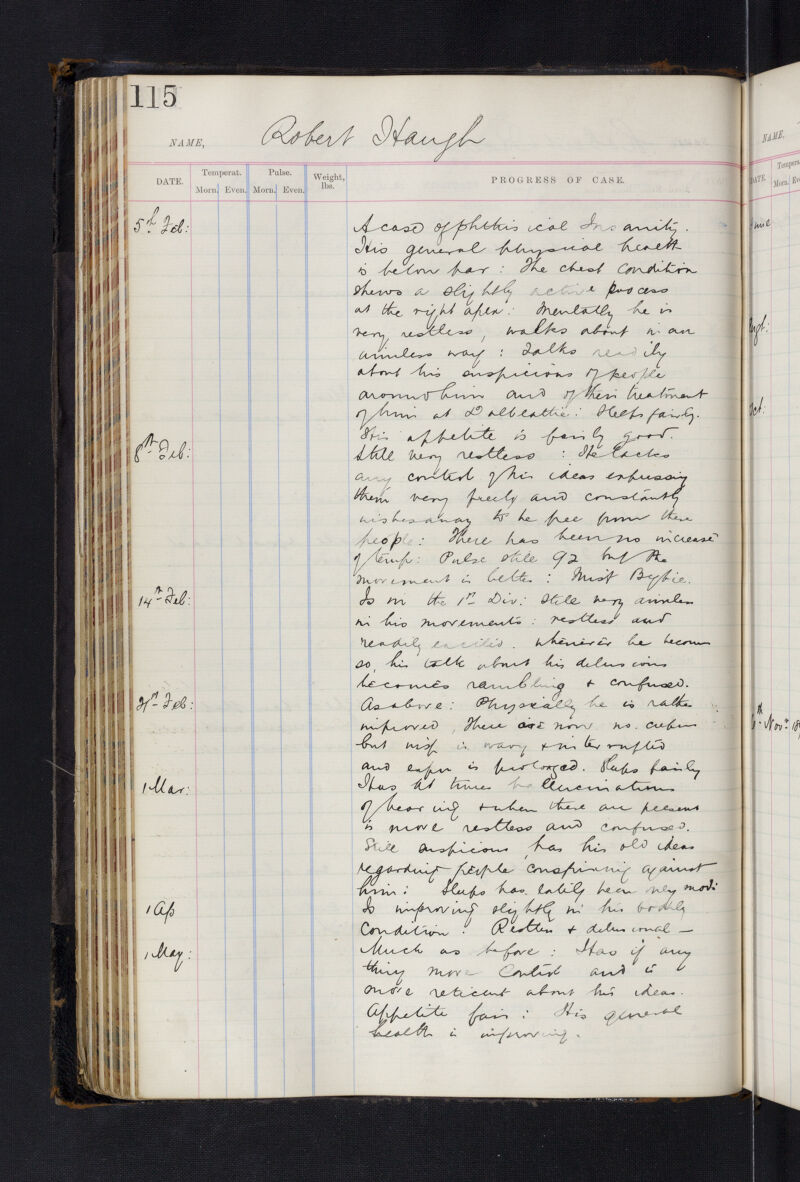 115
NAME, Robert Haugh
DATE. Temperat. Pulse. Weight, lbs. PROGRESS OF CASE.
Morn. Even. Morn. Even.
5th Feb: A case of phthisical Insanity.
His general physical health
is below par: The chest condition
shews a slightly active process
at the right apex: Mentally he is
very restless, walks about in an
aimless way: Talks readily
about his suspicions of people
around him and of their treatment
of him at Dalbeattie: Sleeps fairly.
His appetite is fairly good.
8th Feb: Still very restless: He lacks
any control of his ideas expressing
them very freely and constantly
wishes away to be free from these
people: There has been no increase
of temp: Pulse still 92 but the
movement is better: Mist Bybie.
14th Feb: Is in the 1st Div: Still very aimless
in his movements: restless and
readily excited. Whenever he becomes
so, his talk about his delusions
becomes rambling & confused.
21st Feb: As above: Physically he is rather
improved, There are now no
but insp is wavy & interrupted
and expn is prolonged. Sleeps fairly
1 Mar: Has at times hallucinations
of hearing & when these are present
is more restless and confused.
Still suspicious, has his old ideas
regarding people conspiring against
him: Sleeps has lately been very mod:
1 Ap Is improving slightly in his bodily
condition: Restless & delusional —
1 May: Much as before: Has if any
thing more control and is
more reticent about his ideas.
Appetite fair: His general
health is improving.
NAME,
DATE.
Morn.
Sept:
Oct:
6th Novr 189